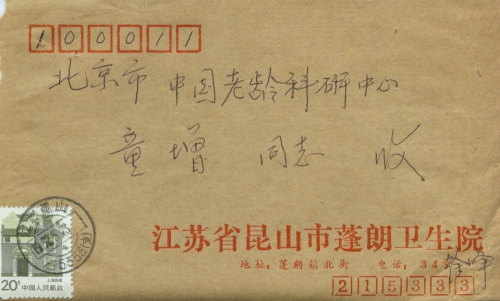 100011
北京市 中国老龄科研中心
童增 同志 收
江苏省昆山市蓬朗卫生院
地址：蓬朗镇北街 电话：34
215333
上海民居
20分 中国人民邮政